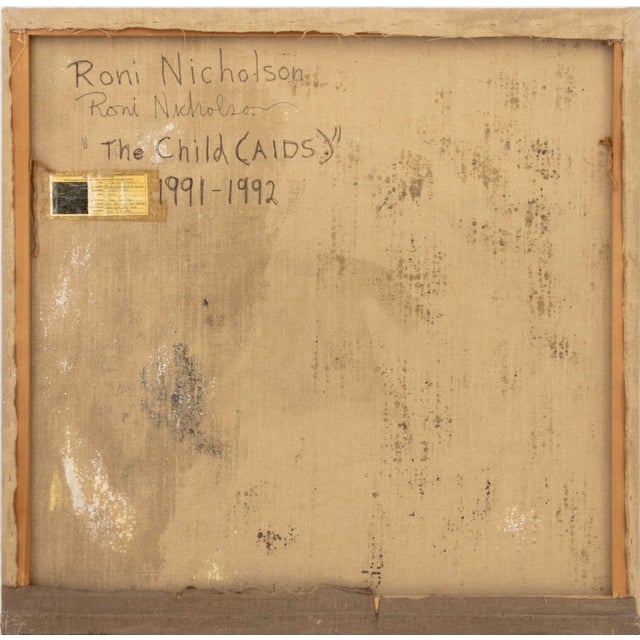 Roni Nicholson
Roni Nicholson
"The Child (AIDS)"
1991-1992